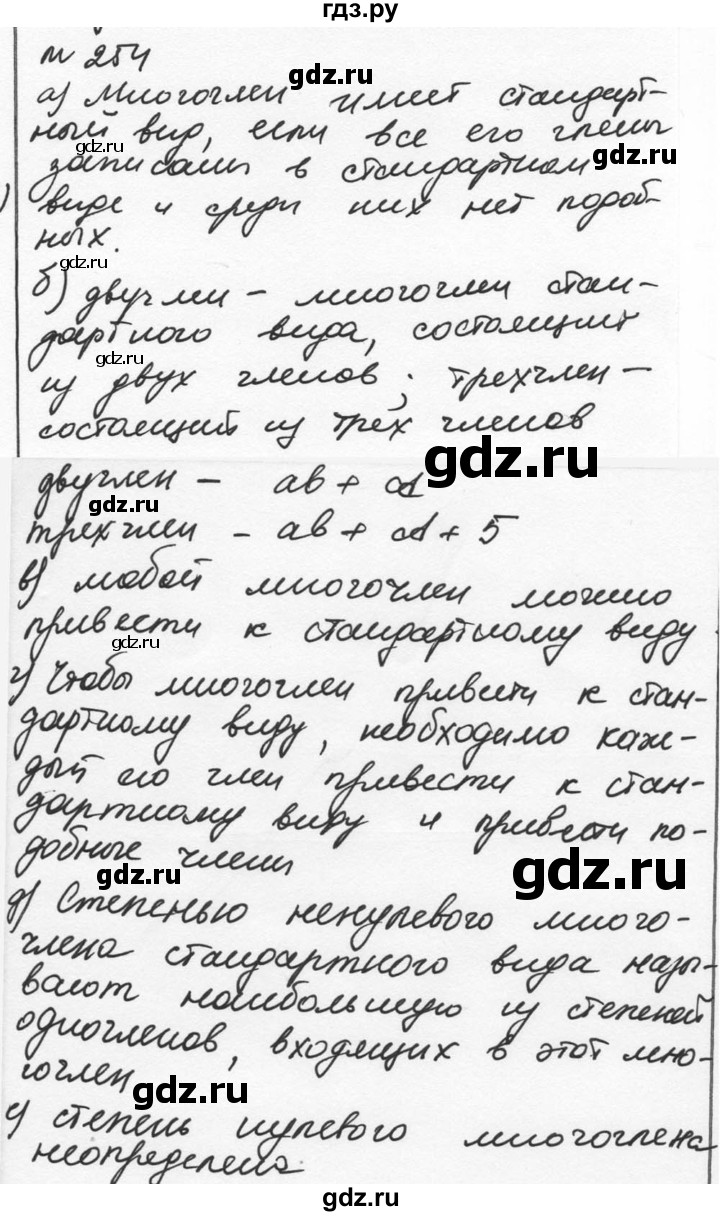 гдз.ру
№ 254
gdz.ru
а) Многочлен имеет стандарт-
ный вид, если все его члены
gdz.ru
gdz.ru
записаны в стандартном
виде и среди них нет подоб-
ных.
gdz.ru
б) двучлен - многочлен стан-
дартного вида, состоящий
gdz.ru
из двух членов; трехчлен -
состоящий из трёх членов
gdz.ru
двучлен - ab + cd
gdz.ru
трехчлен - ab + cd + 5
в) любой многочлен можно
привести к стандартному виду
gdz.ru
г) Чтобы многочлен привести к стан-
дартному виду, необходимо каж-
дый его член привести к стан-
дартному виду и привести по-
добные члены
gdz.ru
gdz.ru
д) Степенью ненулевого много-
члена стандартного вида назы-
вают наибольшую из степеней
одночленов, входящих в этот мно-
гочлен
gdz.ru
е) степень нулевого многочлена
неопределена
gdz.ru
gdz.ru